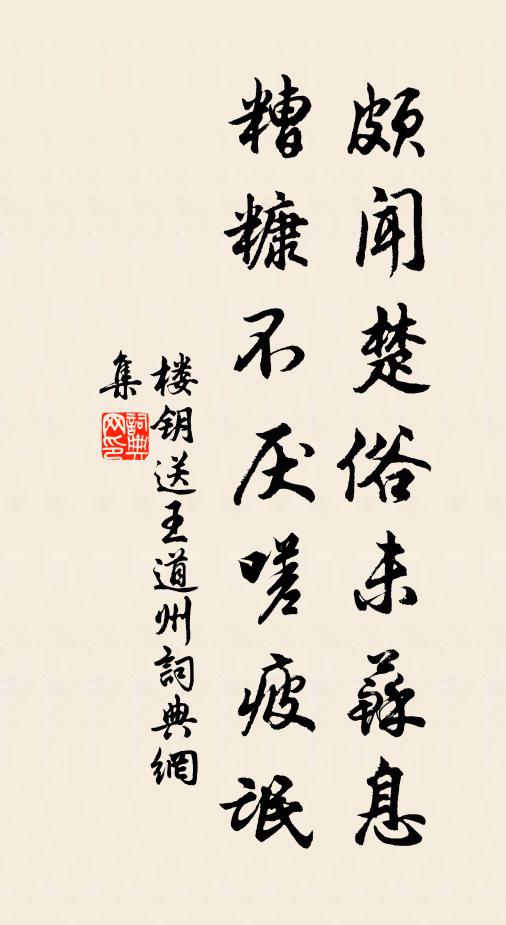 颇闻楚俗未蘇息
糟糠不厌嗟疲氓
楼钥送王道州詞典網
集
詞典网印